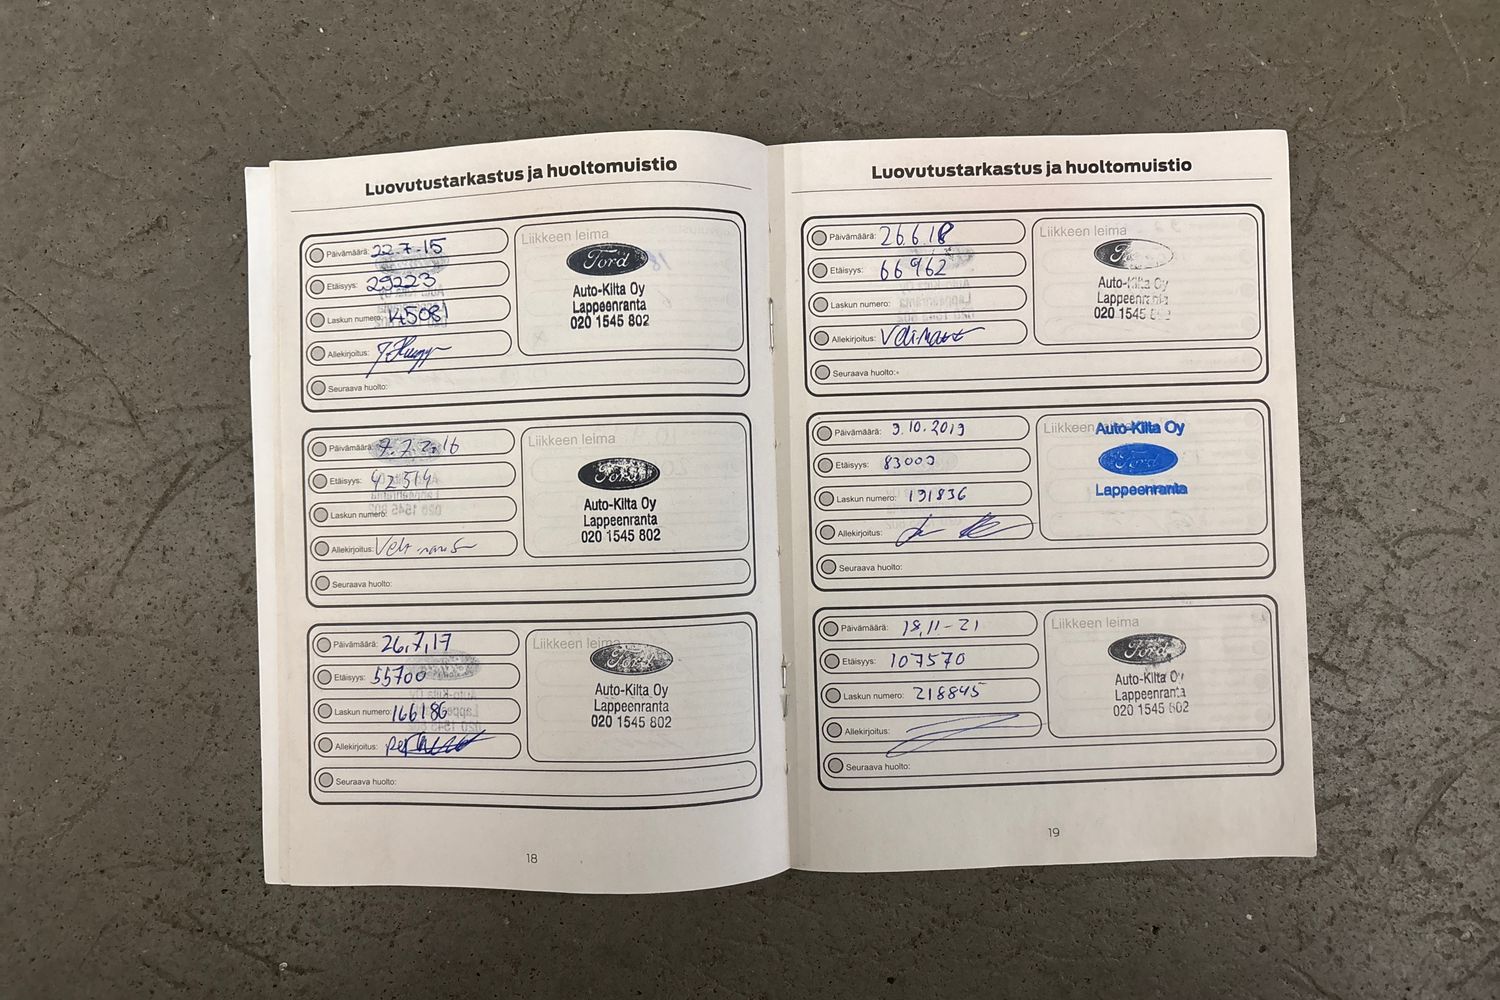 Luovutustarkastus ja huoltomuistio
Päivämäärä: 22.7.15
Etäisyys: 29223
Laskun numero: 145081
Allekirjoitus:
Seuraava huolto:
Liikkeen leima
Ford
Auto-Kilta Oy
Lappeenranta
020 1545 802
Päivämäärä: 7.7.2016
Etäisyys: 42514
Laskun numero:
Allekirjoitus:
Seuraava huolto:
Liikkeen leima
Ford
Auto-Kilta Oy
Lappeenranta
020 1545 802
Päivämäärä: 26,7,17
Etäisyys: 55700
Laskun numero: 166186
Allekirjoitus:
Seuraava huolto:
Liikkeen leima
Ford
Auto-Kilta Oy
Lappeenranta
020 1545 802
18
Luovutustarkastus ja huoltomuistio
Päivämäärä: 26.6.18
Etäisyys: 66962
Laskun numero:
Allekirjoitus:
Seuraava huolto:
Liikkeen leima
Ford
Auto-Kilta Oy
Lappeenranta
020 1545 802
Päivämäärä: 9.10.2019
Etäisyys: 83009
Laskun numero: 191836
Allekirjoitus:
Seuraava huolto:
Liikkeen leima
Auto-Kilta Oy
Ford
Lappeenranta
Päivämäärä: 18,11-21
Etäisyys: 107570
Laskun numero: 218845
Allekirjoitus:
Seuraava huolto:
Liikkeen leima
Ford
Auto-Kilta Oy
Lappeenranta
020 1545 802
19